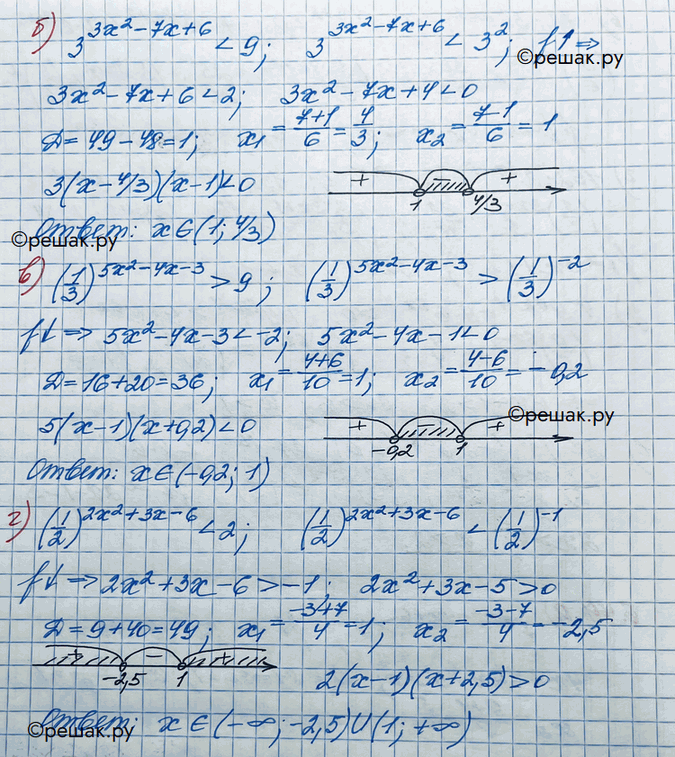 б) 3^(3x²-7x+6) < 9; 3^(3x²-7x+6) < 3²; f↑ ⇒
©решак.ру
3x²-7x+6 < 2; 3x²-7x+4 < 0
D = 49-48 = 1; x₁ = (7+1)/6 = 4/3; x₂ = (7-1)/6 = 1
3(x-4/3)(x-1) < 0 + - + 1 4/3
Ответ: x∈(1; 4/3)
©решак.ру
в) (1/3)^(5x²-4x-3) > 9; (1/3)^(5x²-4x-3) > (1/3)^(-2)
f↓ ⇒ 5x²-4x-3 < -2; 5x²-4x-1 < 0
D = 16+20 = 36; x₁ = (4+6)/10 = 1; x₂ = (4-6)/10 = -0,2
5(x-1)(x+0,2) < 0 + - + -0,2 1
©решак.ру
Ответ: x∈(-0,2; 1)
г) (1/2)^(2x²+3x-6) < 2; (1/2)^(2x²+3x-6) < (1/2)^(-1)
f↓ ⇒ 2x²+3x-6 > -1; 2x²+3x-5 > 0
D = 9+40 = 49; x₁ = (-3+7)/4 = 1; x₂ = (-3-7)/4 = -2,5
+ - + -2,5 1
2(x-1)(x+2,5) > 0
Ответ: x∈(-∞; -2,5)∪(1; +∞)
©решак.ру